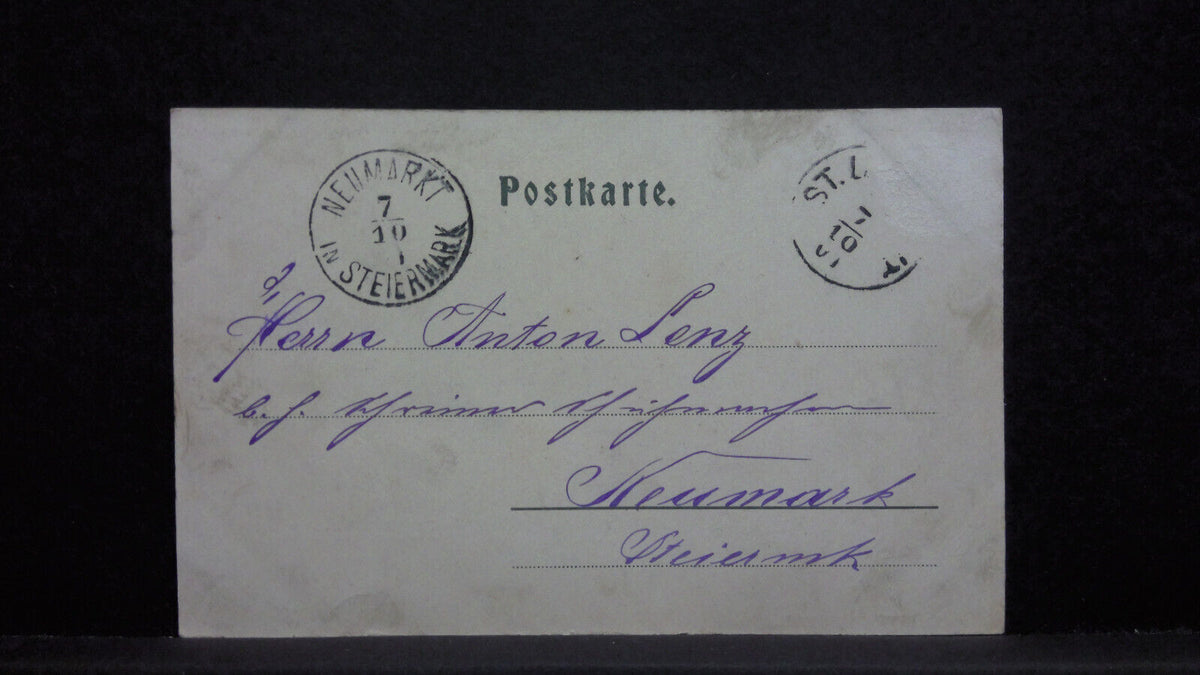 NEUMARKT
7
10
1
IN STEIERMARK
Postkarte.
ST. L
10
01
Herrn Anton Lenz
b. H.
Neumark
Steiermk